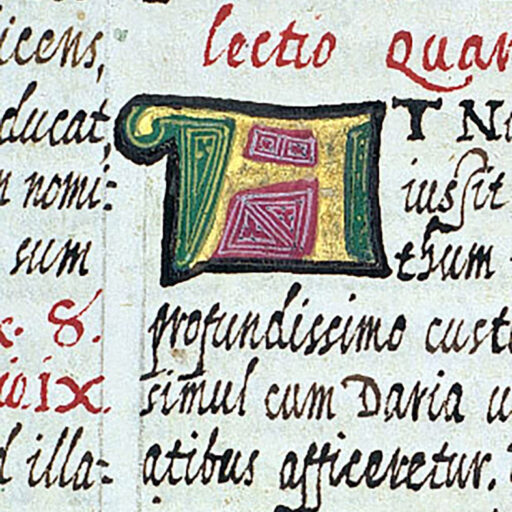 icens,
ducat,
n nomi:
sum
x. 8.
io. IX.
d illa:
lectio Quar
AT N
iusſit
thum
profundissimo custo
simul cum Daria u
atibus afficeretur.